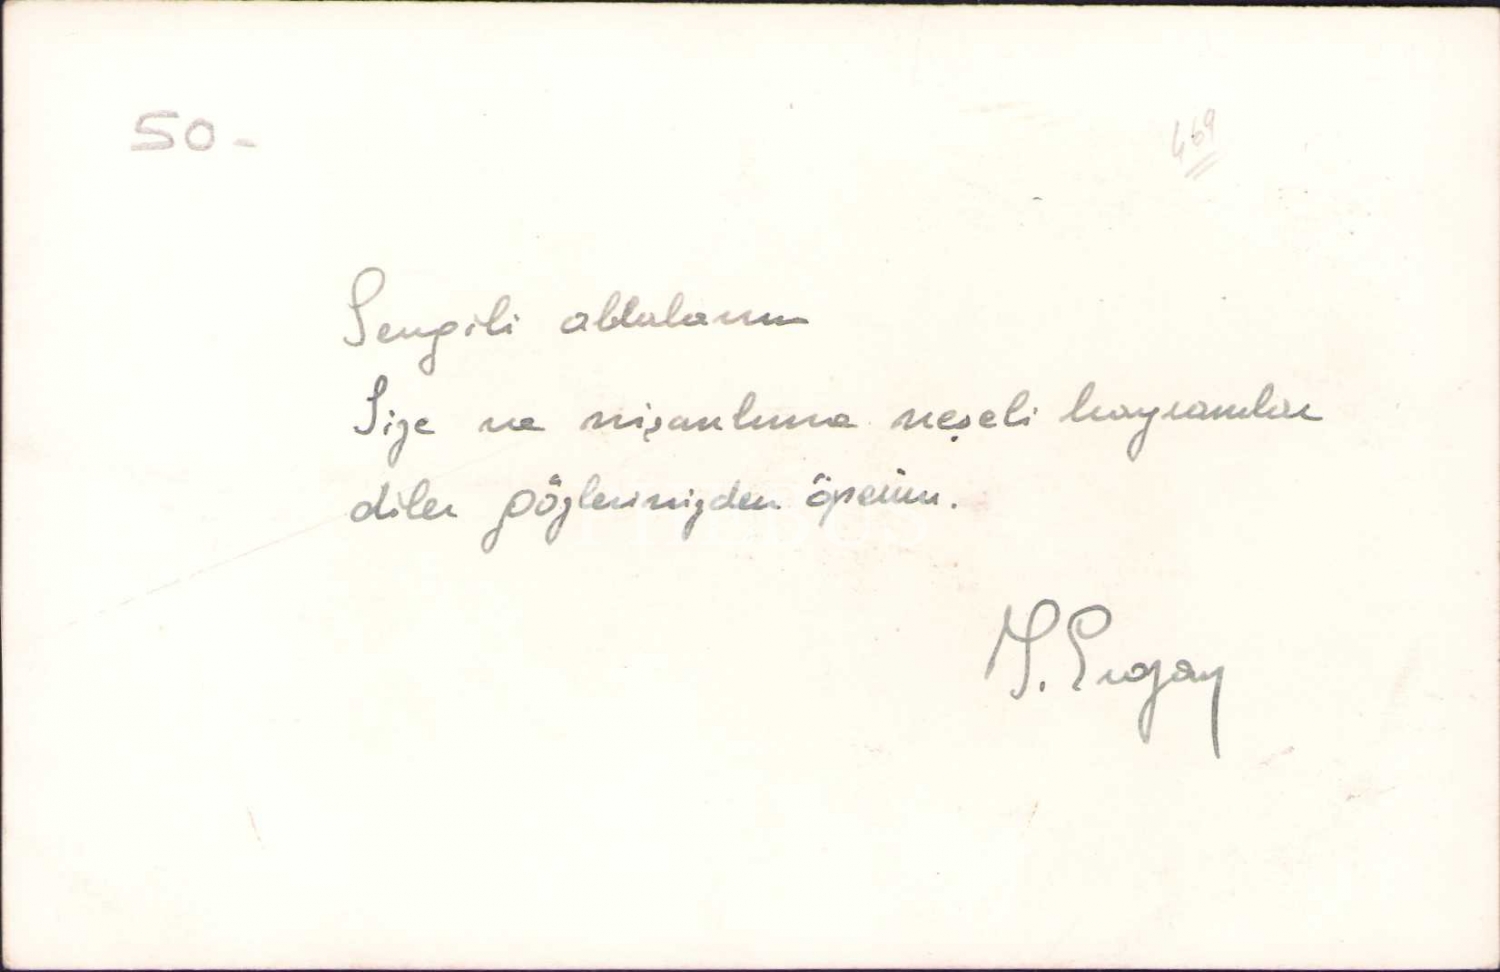 50-
469
Sevgili ablalarım
Size ve nişanlına neşeli bayramlar
diler gözlerinizden öperim.